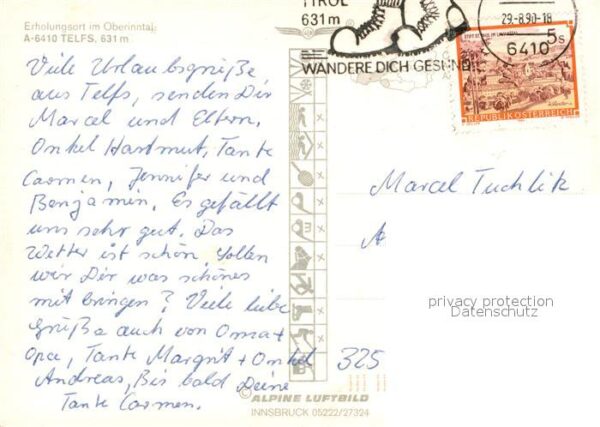 Erholungsort im Oberinntal:
A-6410 TELFS, 631 m
Viele Urlaubsgrüße
aus Telfs, senden Dir
Marcel und Eltern,
Onkel Hartmut, Tante
Carmen, Jennifer und
Benjamin. Es gefällt
uns sehr gut. Das
Wetter ist schön. Sollen
wir Dir was schönes
mit bringen? Viele liebe
Grüße auch von Oma +
Opa, Tante Margrit + Onkel
Andreas, Bis bald Deine
Tante Carmen.
TIROL
631 m
WANDERE DICH GESUND
29.-8.90-18
6410
5 S
REPUBLIK ÖSTERREICH
Marcel Tuchlik
A
privacy protection
Datenschutz
325
© ALPINE LUFTBILD
INNSBRUCK 05222/27324